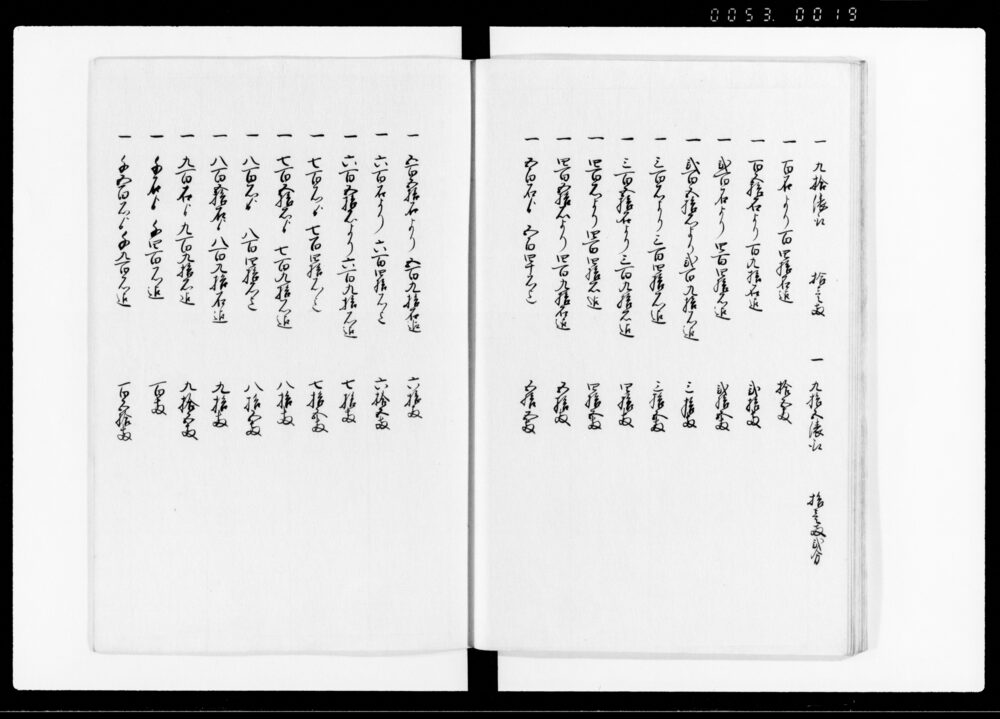 0053.0019
一 九拾俵ニ 拾三両 一 九拾五俵ニ 拾三両弐分
一 百石より百四拾石迄 拾五両
一 百五拾石より百九拾石迄 弐拾両
一 弐百石より弐百四拾石迄 弐拾五両
一 弐百五拾石より弐百九拾石迄 三拾両
一 三百石より三百四拾石迄 三拾五両
一 三百五拾石より三百九拾石迄 四拾両
一 四百石より四百四拾石迄 四拾五両
一 四百五拾石より四百九拾石迄 五拾両
一 五百石ゟ 五百四十石迄 五拾五両
一 五百五拾石より 五百九拾石迄 六拾両
一 六百石より 六百四拾石迄 六拾五両
一 六百五拾石より六百九拾石迄 七拾両
一 七百石ゟ 七百四拾石迄 七拾五両
一 七百五拾石ゟ 七百九拾石迄 八拾両
一 八百石ゟ 八百四拾石迄 八拾五両
一 八百五拾石ゟ 八百九拾石迄 九拾両
一 九百石ゟ 九百九拾石迄 九拾五両
一 千石ゟ 千四百石迄 百両
一 千五百石ゟ千九百石迄 百五拾両